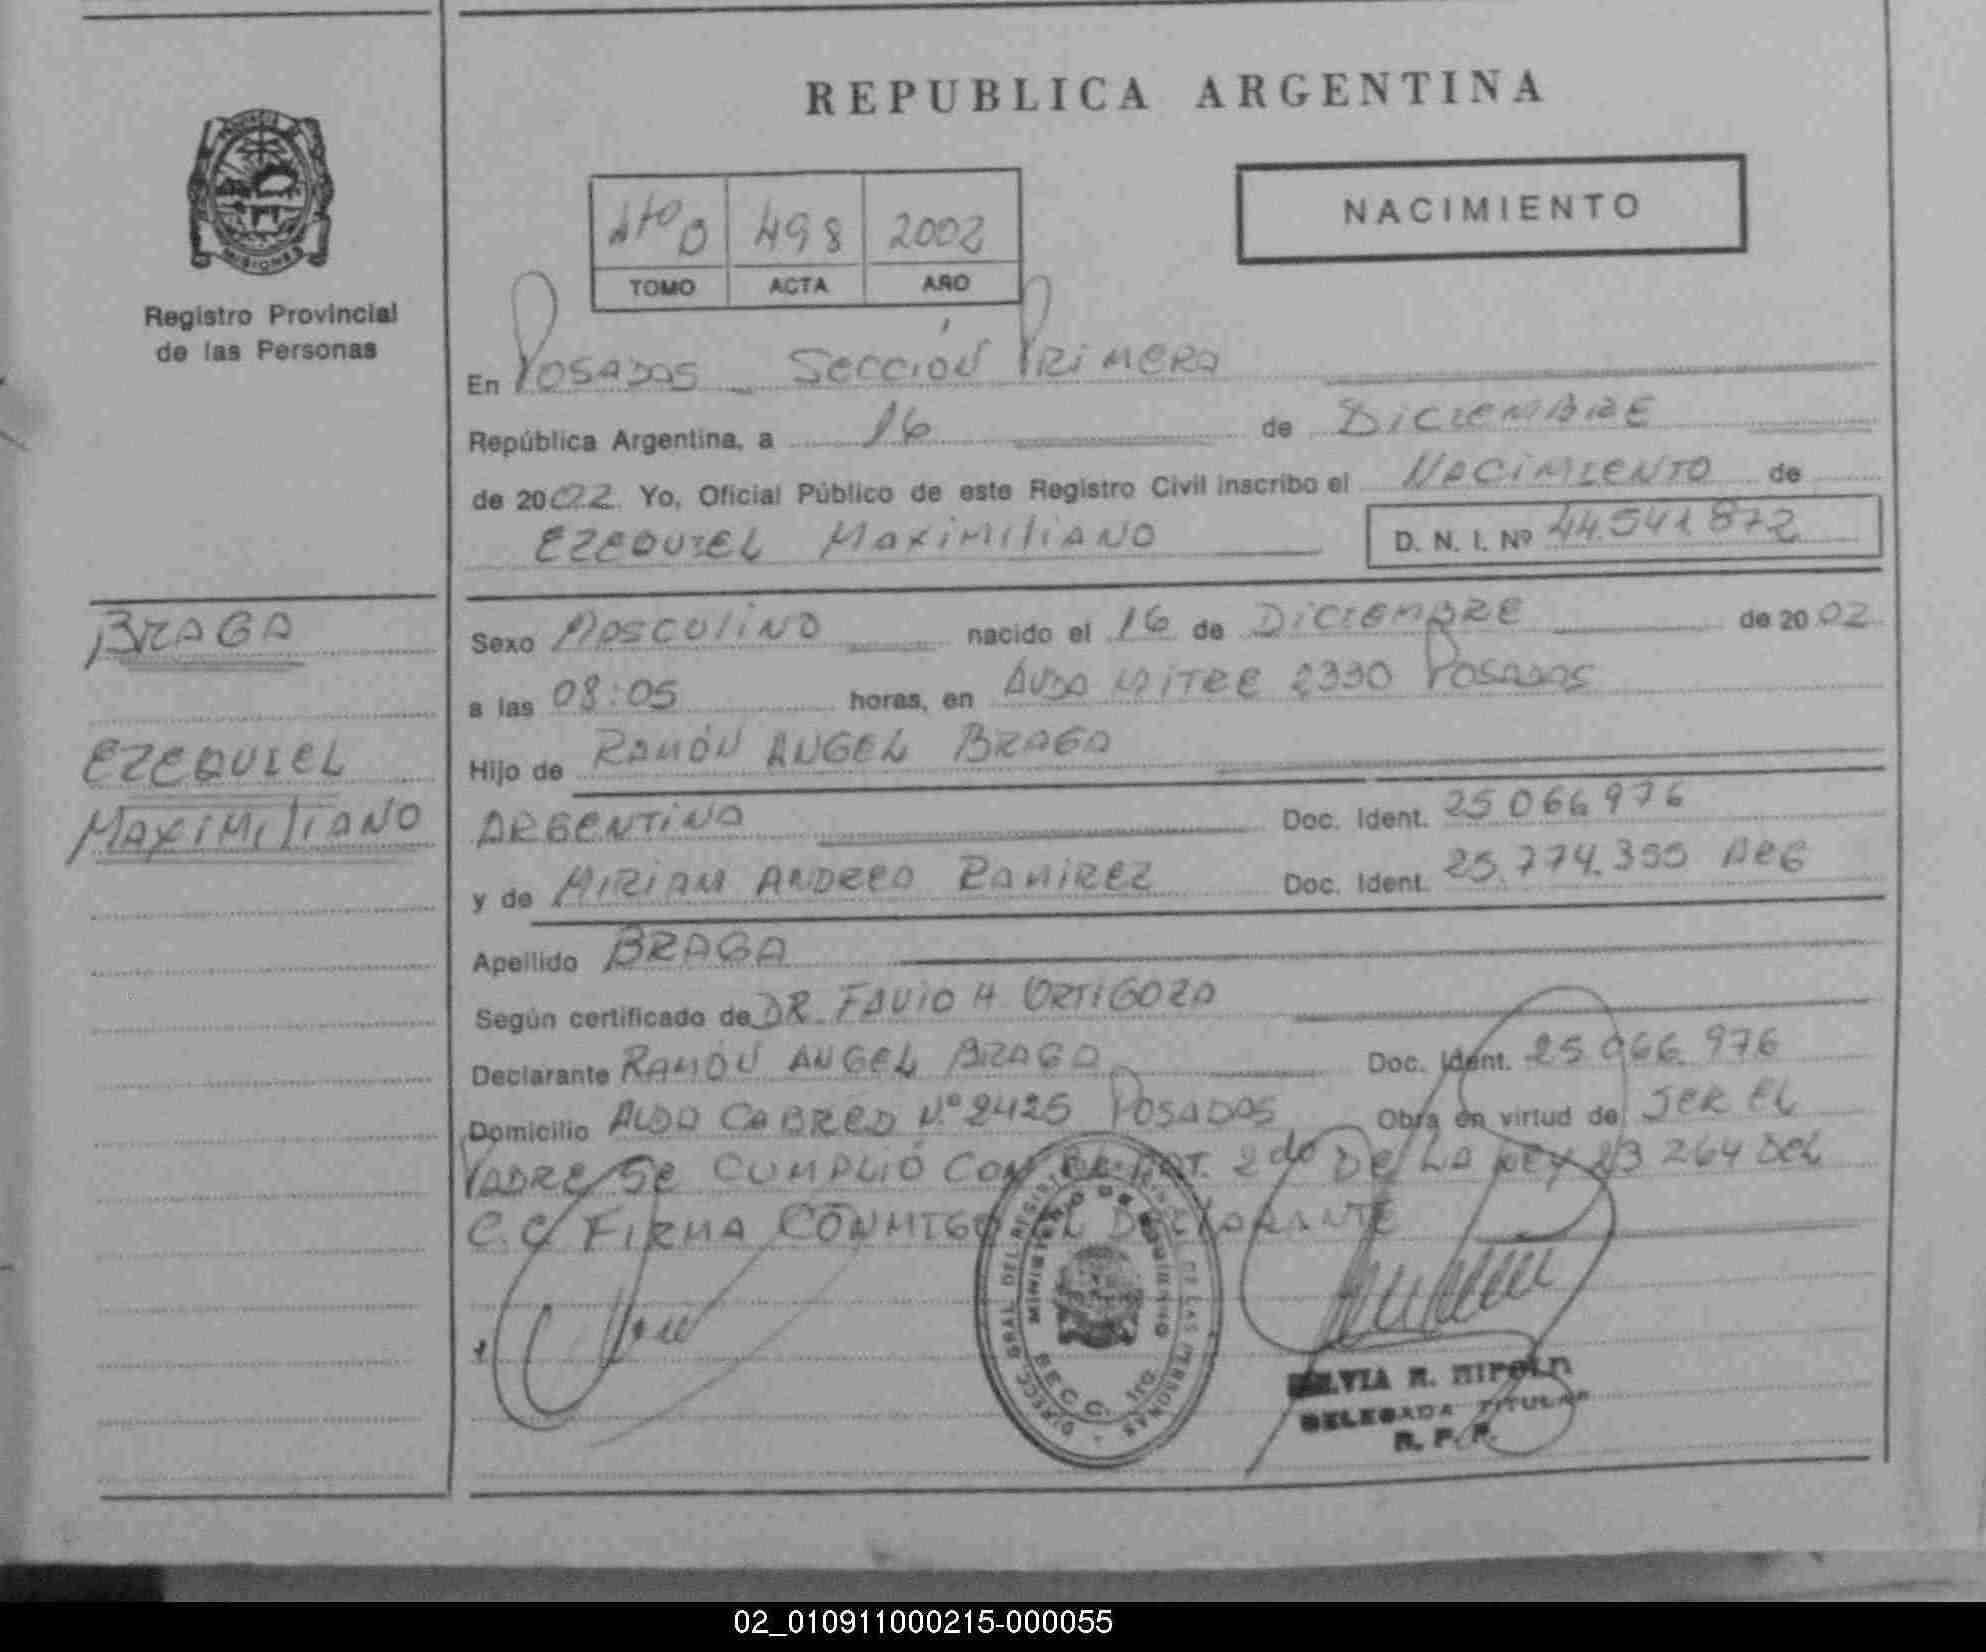 REPUBLICA ARGENTINA
NACIMIENTO
4to B 498 2002
TOMO ACTA AÑO
MISIONES
Registro Provincial
de las Personas
En Posadas - Sección Primera
República Argentina, a 16 de Diciembre
de 2002 Yo, Oficial Público de este Registro Civil inscribo el Nacimiento de
Ezequiel Maximiliano D. N. I. Nº 44.541872
BRAGA
EZEQUIEL
MAXIMILIANO
Sexo Masculino nacido el 16 de Diciembre de 2002
a las 08:05 horas, en Avda Mitre 2330 Posadas
Hijo de Ramón Angel Braga
Argentina Doc. Ident. 25 066 976
y de Miriam Andrea Ramirez Doc. Ident. 25.774.355 ARG
Apellido BRAGA
Según certificado de DR. Favio H Ortigoza
Declarante Ramón Angel Braga Doc. Ident. 25 066 976
Domicilio Avda Cabred N.º 2425 Posadas Obra en virtud de Ser el
Padre Se cumplió con el Art. 2do De La Ley 23 264 del
C.C Firma Conmigo el Declarante
MINISTERIO DE GOBIERNO
DELEGADA TITULAR
R. P. P.
02_010911000215-000055